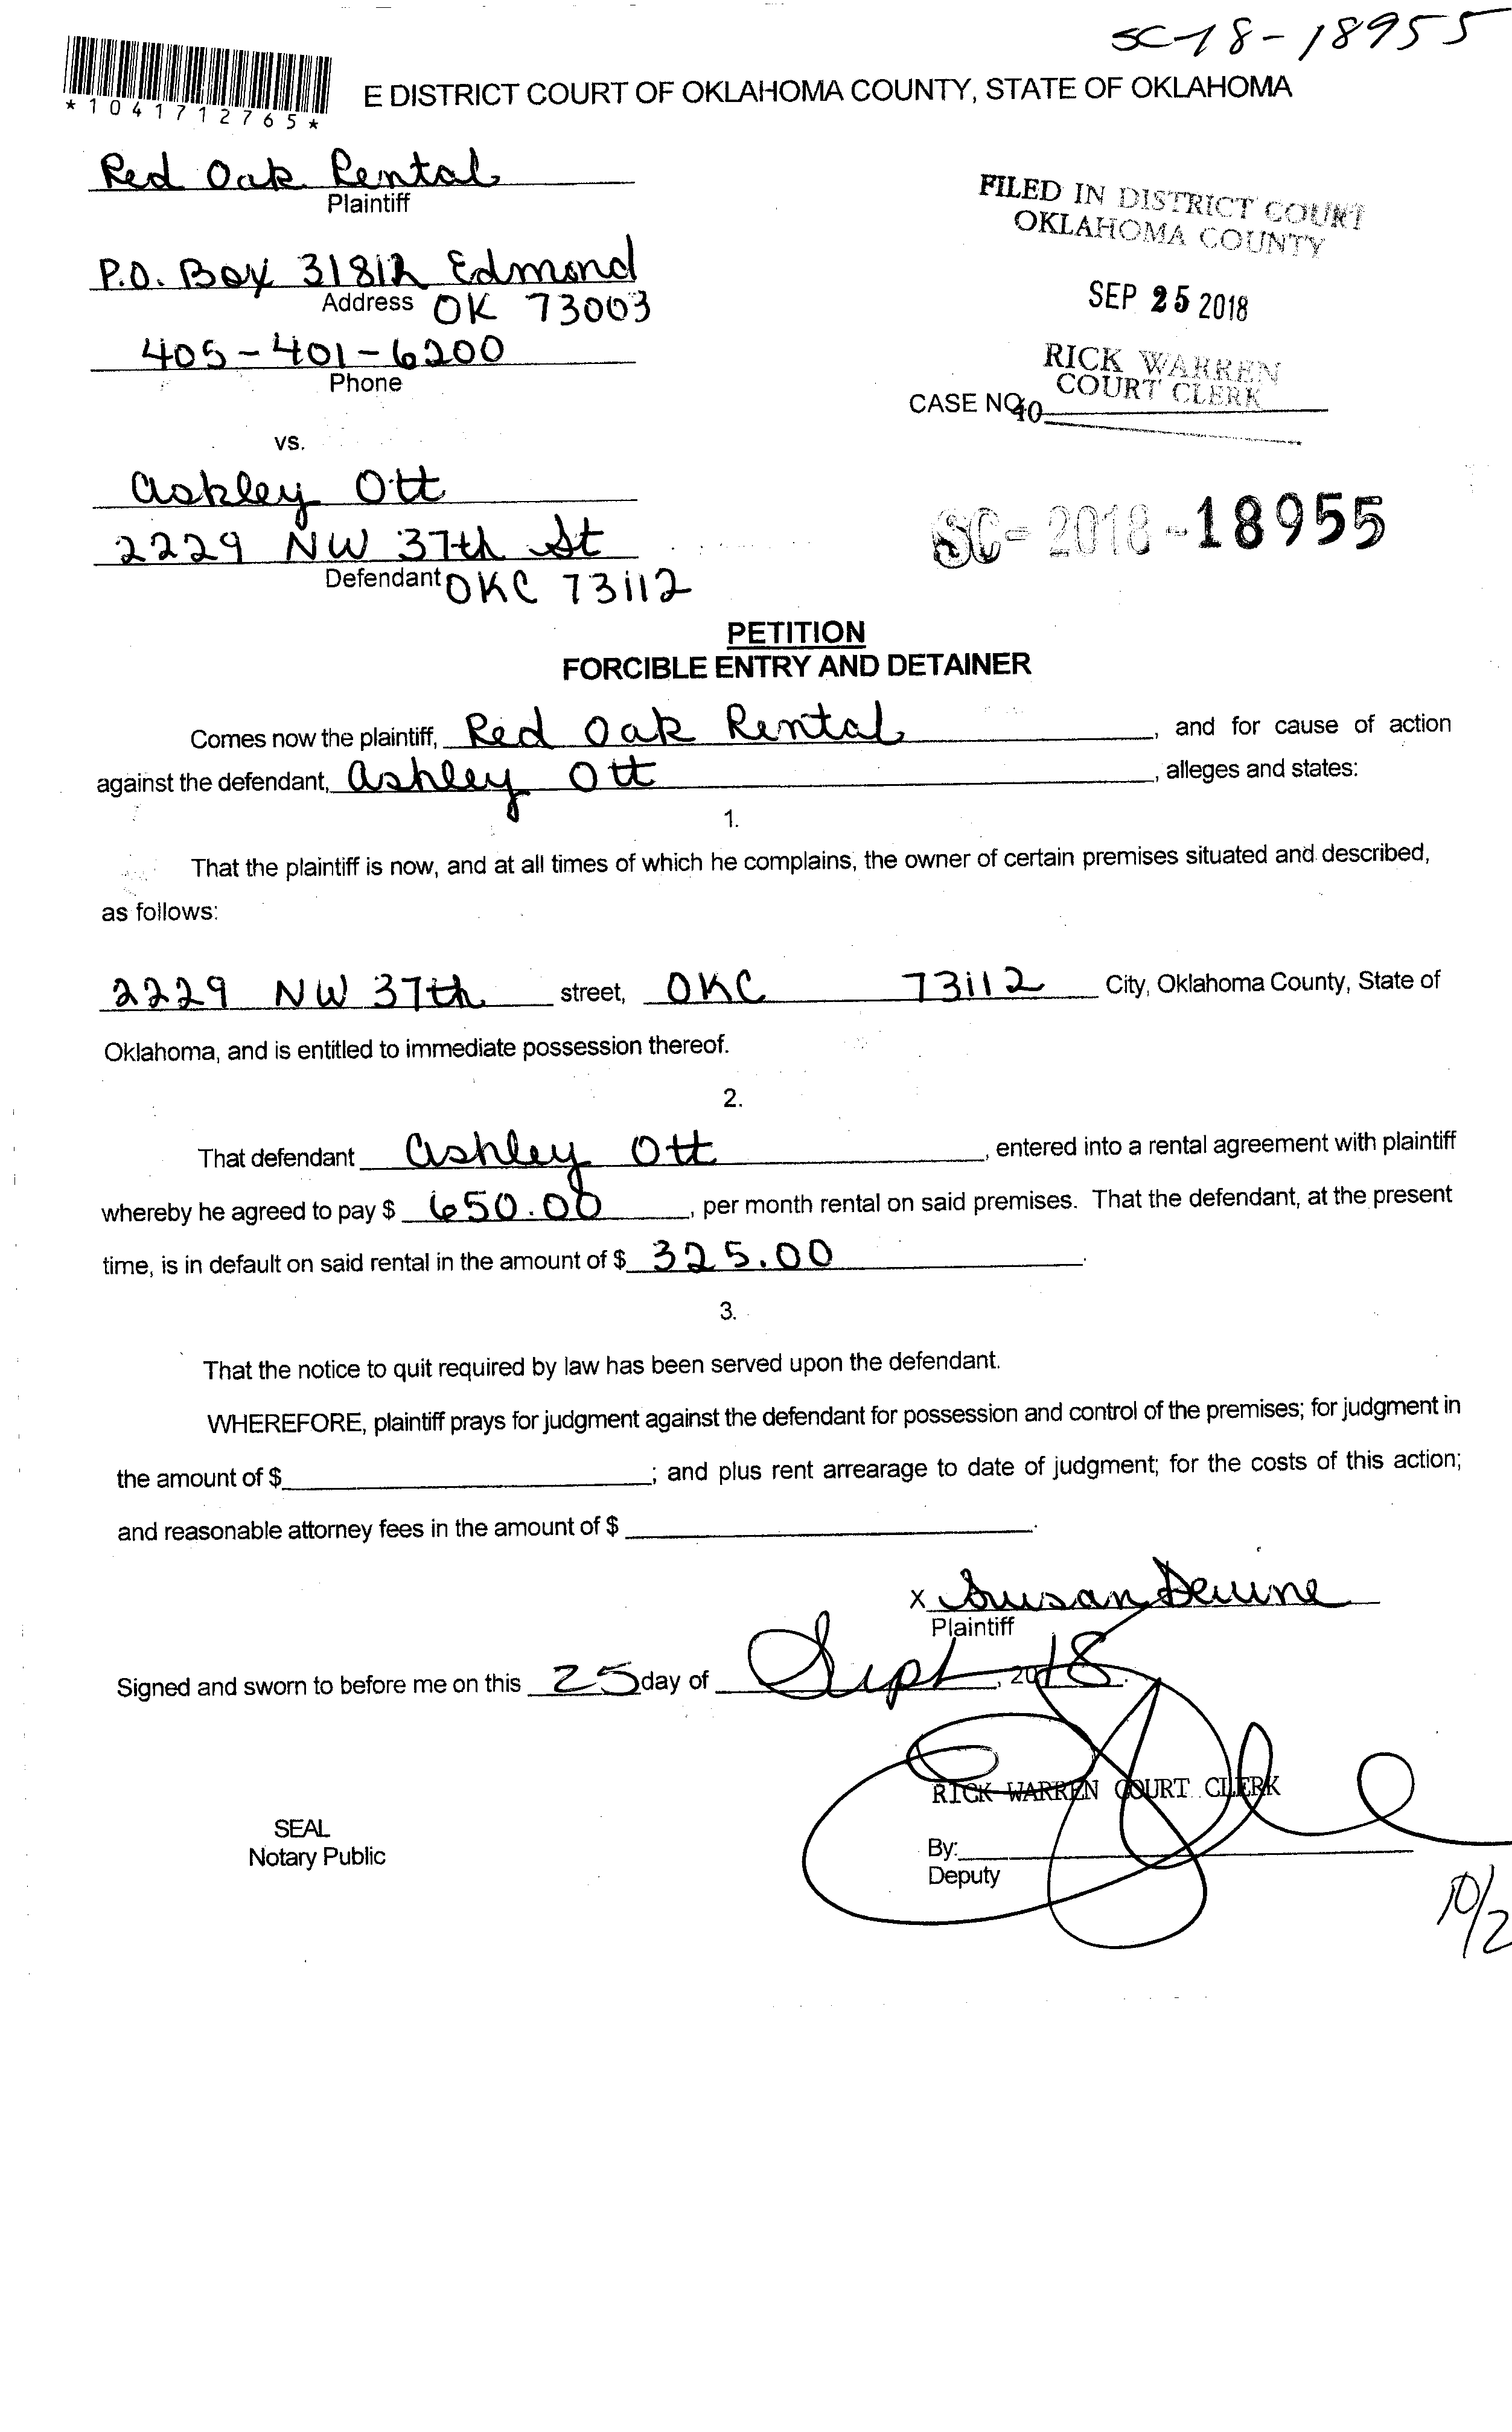 SC-18-18955
*1041712765*
E DISTRICT COURT OF OKLAHOMA COUNTY, STATE OF OKLAHOMA
Red Oak Rental
Plaintiff
FILED IN DISTRICT COURT
OKLAHOMA COUNTY
P.O. Box 31812 Edmond
Address OK 73003
SEP 25 2018
405-401-6200
Phone
RICK WARREN
COURT CLERK
CASE NO.
40
vs.
Ashley Ott
2229 NW 37th St
Defendant OKC 73112
SC-2018-18955
PETITION
FORCIBLE ENTRY AND DETAINER
Comes now the plaintiff, Red Oak Rental, and for cause of action
against the defendant, Ashley Ott, alleges and states:
1.
That the plaintiff is now, and at all times of which he complains, the owner of certain premises situated and described,
as follows:
2229 NW 37th street, OKC 73112 City, Oklahoma County, State of
Oklahoma, and is entitled to immediate possession thereof.
2.
That defendant Ashley Ott, entered into a rental agreement with plaintiff
whereby he agreed to pay $ 650.00, per month rental on said premises. That the defendant, at the present
time, is in default on said rental in the amount of $ 325.00.
3.
That the notice to quit required by law has been served upon the defendant.
WHEREFORE, plaintiff prays for judgment against the defendant for possession and control of the premises; for judgment in
the amount of $ ; and plus rent arrearage to date of judgment; for the costs of this action;
and reasonable attorney fees in the amount of $ .
x Susan Devine
Plaintiff
Signed and sworn to before me on this 25 day of Sept, 2018.
RICK WARREN COURT CLERK
SEAL
Notary Public
By:
Deputy
10/2